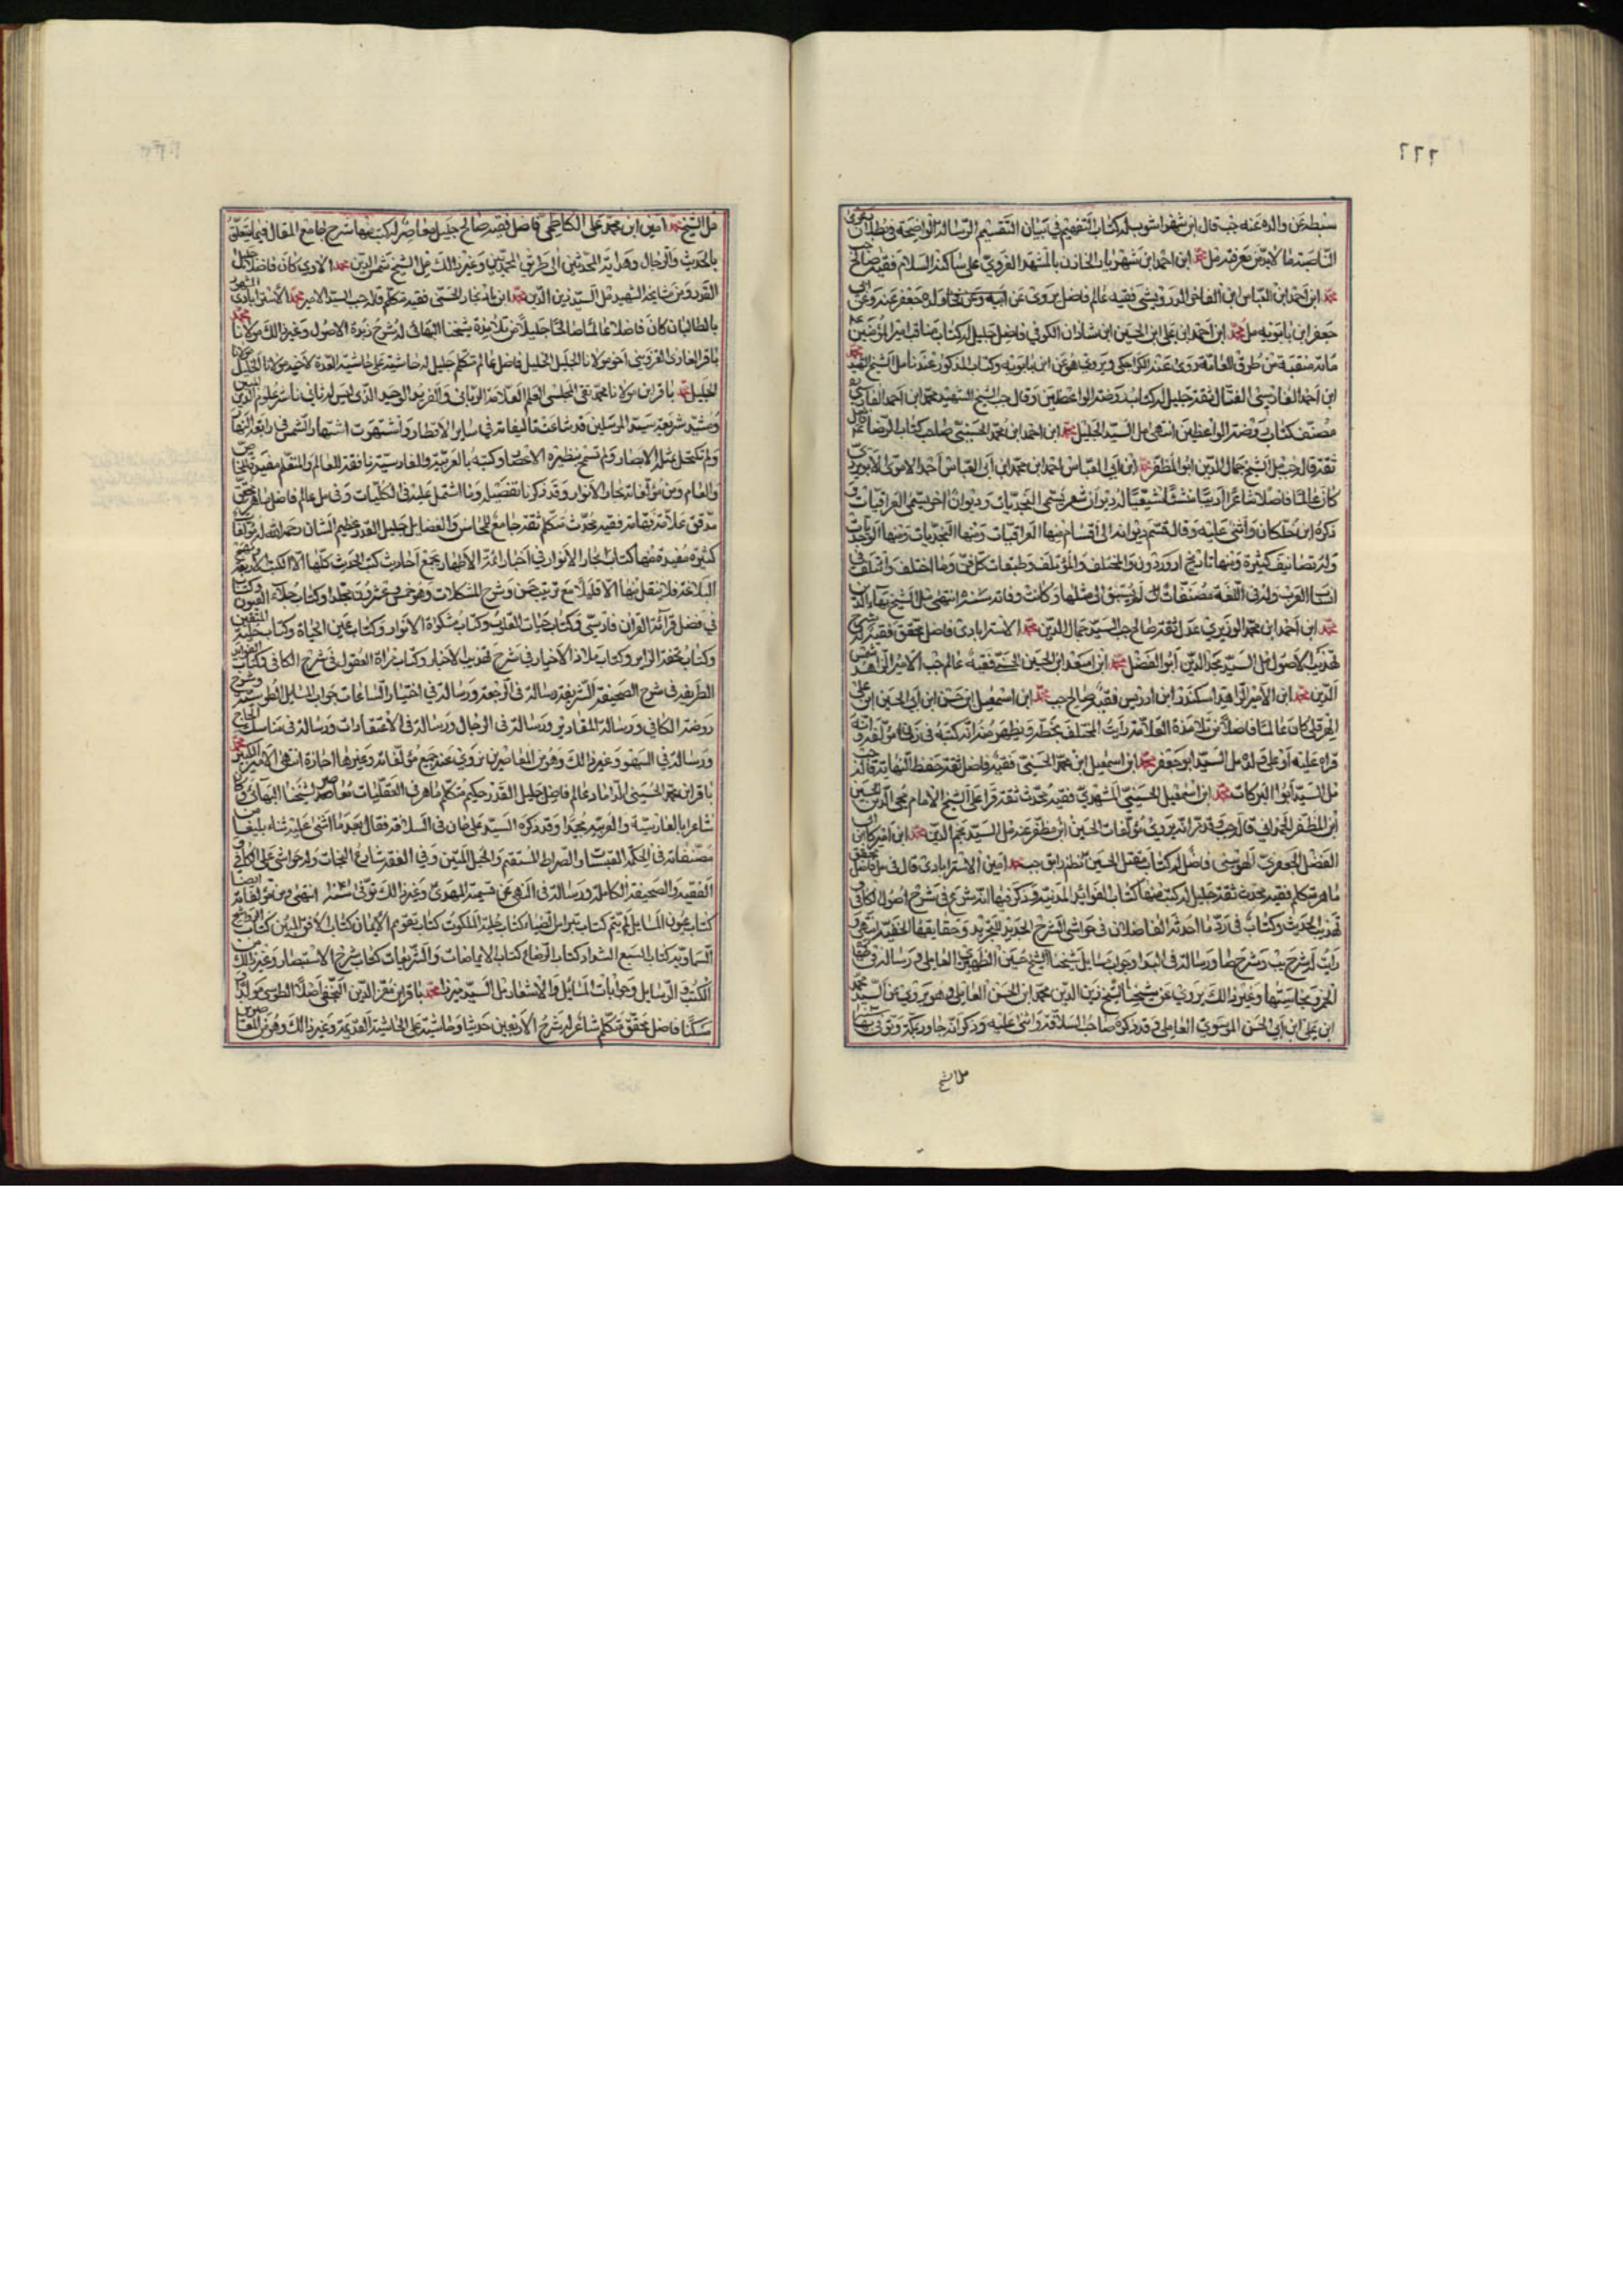 ٢٦٦
سبطه عن والده عنه جب قال ابن شهراشوب له كتاب التفهيم في بيان التقسيم الرسالة الواضحة في بطلان دعوى
الناصبة ما لا بد من معرفته مل محمد ابن احمد ابن شهريار الخازن بالمشهد الغروي على ساكنه السلام فقيه صالح جب
محمد ابن احمد ابن العباس ابن الفاخر الدوريستي فقيه عالم فاضل يروي عن ابيه وعن
جعفر ابن بابويه مل محمد ابن احمد ابن علي ابن الحسين ابن شاذان الكوفي فاضل جليل له كتاب مناقب امير المؤمنين
مائة منقبة من طرق العامة روى عنه الكراجكي ويروي هو عن ابن بابويه وكتابه المذكور عندنا مل الشيخ الشهيد محمد
ابن احمد الفارسي الفتال ثقة جليل له كتاب روضة الواعظين وقال جب الشيخ الشهيد محمد ابن احمد الفارسي
مصنف كتاب روضة الواعظين انتهى مل السيد الجليل محمد ابن احمد ابن محمد الحسيني صاحب كتاب الرضا فاضل
ثقة قاله جب مل الشيخ جمال الدين ابو المظفر محمد ابن ابي العباس احمد ابن محمد ابن ابي العباس احمد الاموي الابيوردي
كان عالما فاضلا شاعرا اديبا منشئا شيعيا له ديوان شعر يسمى النجديات وديوان اخر يسمى العراقيات
ذكره ابن خلكان واثنى عليه وقال قسم ديوانه الى اقسام منها العراقيات ومنها النجديات ومنها الوجديات
وله تصانيف كثيرة ومنها تاريخ ابيورد والمختلف والمؤتلف وطبقات كل فن وما اختلف وائتلف في
انساب العرب وله في اللغة مصنفات لم يسبق الى مثلها وكانت وفاته سنة انتهى مل الشيخ بهاء الدين
محمد ابن احمد ابن محمد الوزيري عدل ثقة صالح جب السيد جمال الدين محمد الاسترابادي فاضل محقق فقيه له شرح
تهذيب الاصول مل السيد مجد الدين ابو الفضل محمد ابن اسعد ابن الحسين الحسني فقيه عالم جب الامير الزاهد شمس
الدين محمد ابن الامير الزاهد اسكندر ابن ادريس فقيه صالح جب محمد ابن اسمعيل ابن حسن ابن ابي الحسين ابن علي
الهرقلي كان عالما فاضلا من تلامذة العلامة رايت المختلف بخطه ويظهر منه انه كتبه في زمان مؤلفه وانه
قراه عليه او على ولده مل السيد ابو جعفر محمد ابن اسمعيل ابن محمد الحسيني فقيه فاضل ثقة حفظ النهاية قاله جب
مل السيد ابو البركات محمد ابن اسمعيل الحسيني المشهدي فقيه محدث ثقة قرا على الشيخ الامام محيي الدين الحسين
ابن المظفر الحمداني قاله جب وتقدم انه يروي مؤلفات الحسين ابن مظفر عنه مل السيد نجم الدين محمد ابن اميركا ابن ابي
الفضل الجعفري القوسيني فاضل له كتاب مقتل الحسين جب محمد امين الاسترابادي قال في مل فاضل محقق
ماهر متكلم فقيه محدث ثقة جليل له كتب منها كتاب الفوائد المدنية وذكر فيها انه شرع في شرح اصول الكافي
تهذيب الحديث وكتاب في رد ما احدثه الفاضلان في حواشي الشرح الجديد للتجريد وحقايقها الخفية انتهى و
رايت له شرح يب وشرح صا ورسالة في البداء وجواب مسايل شيخنا الشيخ حسين الظهيري العاملي ورسالة في
الخمر ونجاستها وغير ذالك يروي عن شيخنا الشيخ زين الدين محمد ابن الحسن العاملي وهو يروي عن السيد محمد
ابن علي ابن ابي الحسن الموسوي العاملي وقد ذكره صاحب السلافة واثنى عليه وذكر انه جاور بمكة وتوفي بها
مل الشيخ
مل الشيخ محمد امين ابن محمد علي الكاظمي فاضل فقيه صالح جليل معاصر له كتب منها شرح جامع المقال فيما يتعلق
بالحديث والرجال وهداية المحدثين الى طريق المحمدين وغير ذالك مل الشيخ شمس الدين محمد الاوي كان فاضلا جليل
القدر ومن مشايخ الشهيد مل السيد زين الدين محمد ابن الحسني فقيه متكلم قاله جب السيد الامير محمد الاسترابادي الشهير
بالطالبان كان فاضلا عالما صالحا جليلا من تلامذة شيخنا البهائي له شرح زبدة الاصول وغير ذالك مولانا محمد
باقر الغازي القزويني اخو مولانا الجليل الخليل فاضل عالم متكلم جليل له حاشية على حاشية العدة لاخيه مولانا الخليل
الجليل محمد باقر ابن مولانا محمد تقي المجلسي العلم العلامة الرباني والفريد الوحيد الذي ليس له ثاني ناشر علوم الدين
ومشيد شريعة سيد المرسلين قد شاعت تاليفاته في ساير الاقطار واشتهرت اشتهار الشمس في رابعة النهار
ولم تكتحل بمثله الابصار ولم تسمح بنظيره الاعصار وكتبه بالعربية والفارسية نافعة للعالم والمتعلم مفيدة للخاص
والعام ومن مؤلفاته بحار الانوار وقد ذكرنا تفصيله وما اشتمل عليه في الكليات وفي مل عالم فاضل ماهر محقق
مدقق علامة فهامة فقيه محدث متكلم ثقة جامع للمحاسن والفضايل جليل القدر عظيم الشان رحمه الله له مؤلفات
كثيرة مفيدة منها كتاب بحار الانوار في اخبار ائمة الاطهار يجمع احاديث كتب الحديث كلها الا الكتب الاربعة ونهج
البلاغة فلا ينقل منها الا قليلا مع ترتيب حسن وشرح المشكلات وهو خمس وعشرون مجلدا وكتاب جلاء العيون
في فضل قرائة القران فارسي وكتاب حيات القلوب وكتاب مشكوة الانوار وكتاب عين الحياة وكتاب حلية المتقين
وكتاب تحفة الزاير وكتاب ملاذ الاخيار في شرح تهذيب الاخبار وكتاب مراة العقول في شرح الكافي وكتاب الفوايد
الطريفة في شرح الصحيفة الشريفة رسالة في الرجعة ورسالة في اختيار الساعات جواب المسايل الطوسية وشرح
روضة الكافي ورسالة المقادير ورسالة في الرجال ورسالة في الاعتقادات ورسالة في مناسك الحاج
ورسالة في السهو وغير ذالك وهو من المعاصرين نروي عنه جميع مؤلفاته وغيرها اجازة انتهى الامير الكبير محمد
باقر ابن محمد الحسيني الداماد عالم فاضل جليل القدر حكيم متكلم ماهر في العقليات معاصر شيخنا البهائي وكان
شاعرا بالفارسية والعربية مجيدا وقد ذكره السيد علي خان في السلافة فقال بعد ما اثنى عليه ثناء بليغا من
مصنفاته في الحكمة القبسات والصراط المستقيم والحبل المتين وفي الفقه شارع النجات وله حواشي على الكافي و
الفقيه والصحيفة الكاملة ورسالة في النهي عن تسمية المهدي وغير ذالك توفي سنة انتهى ومن مؤلفاته ايضا
كتاب عيون المسايل لم يتم كتاب نبراس الضياء كتاب خلسة الملكوت كتاب تقويم الايمان كتاب الافق المبين كتاب الرواشح
السماوية كتاب السبع الشداد كتاب الرضاع كتاب الايماضات والتشريقات كتاب شرح الاستبصار وغير ذالك من
الكتب والرسايل وجوابات المسائل والاشعار مل السيد ميرزا محمد باقر ابن معز الدين النجفي اصلا الطوسي مولدا و
سكنا فاضل محقق متكلم شاعر له شرح الاربعين حديثا وحاشية على الحاشية القديمة وغير ذالك وهو من المعاصرين